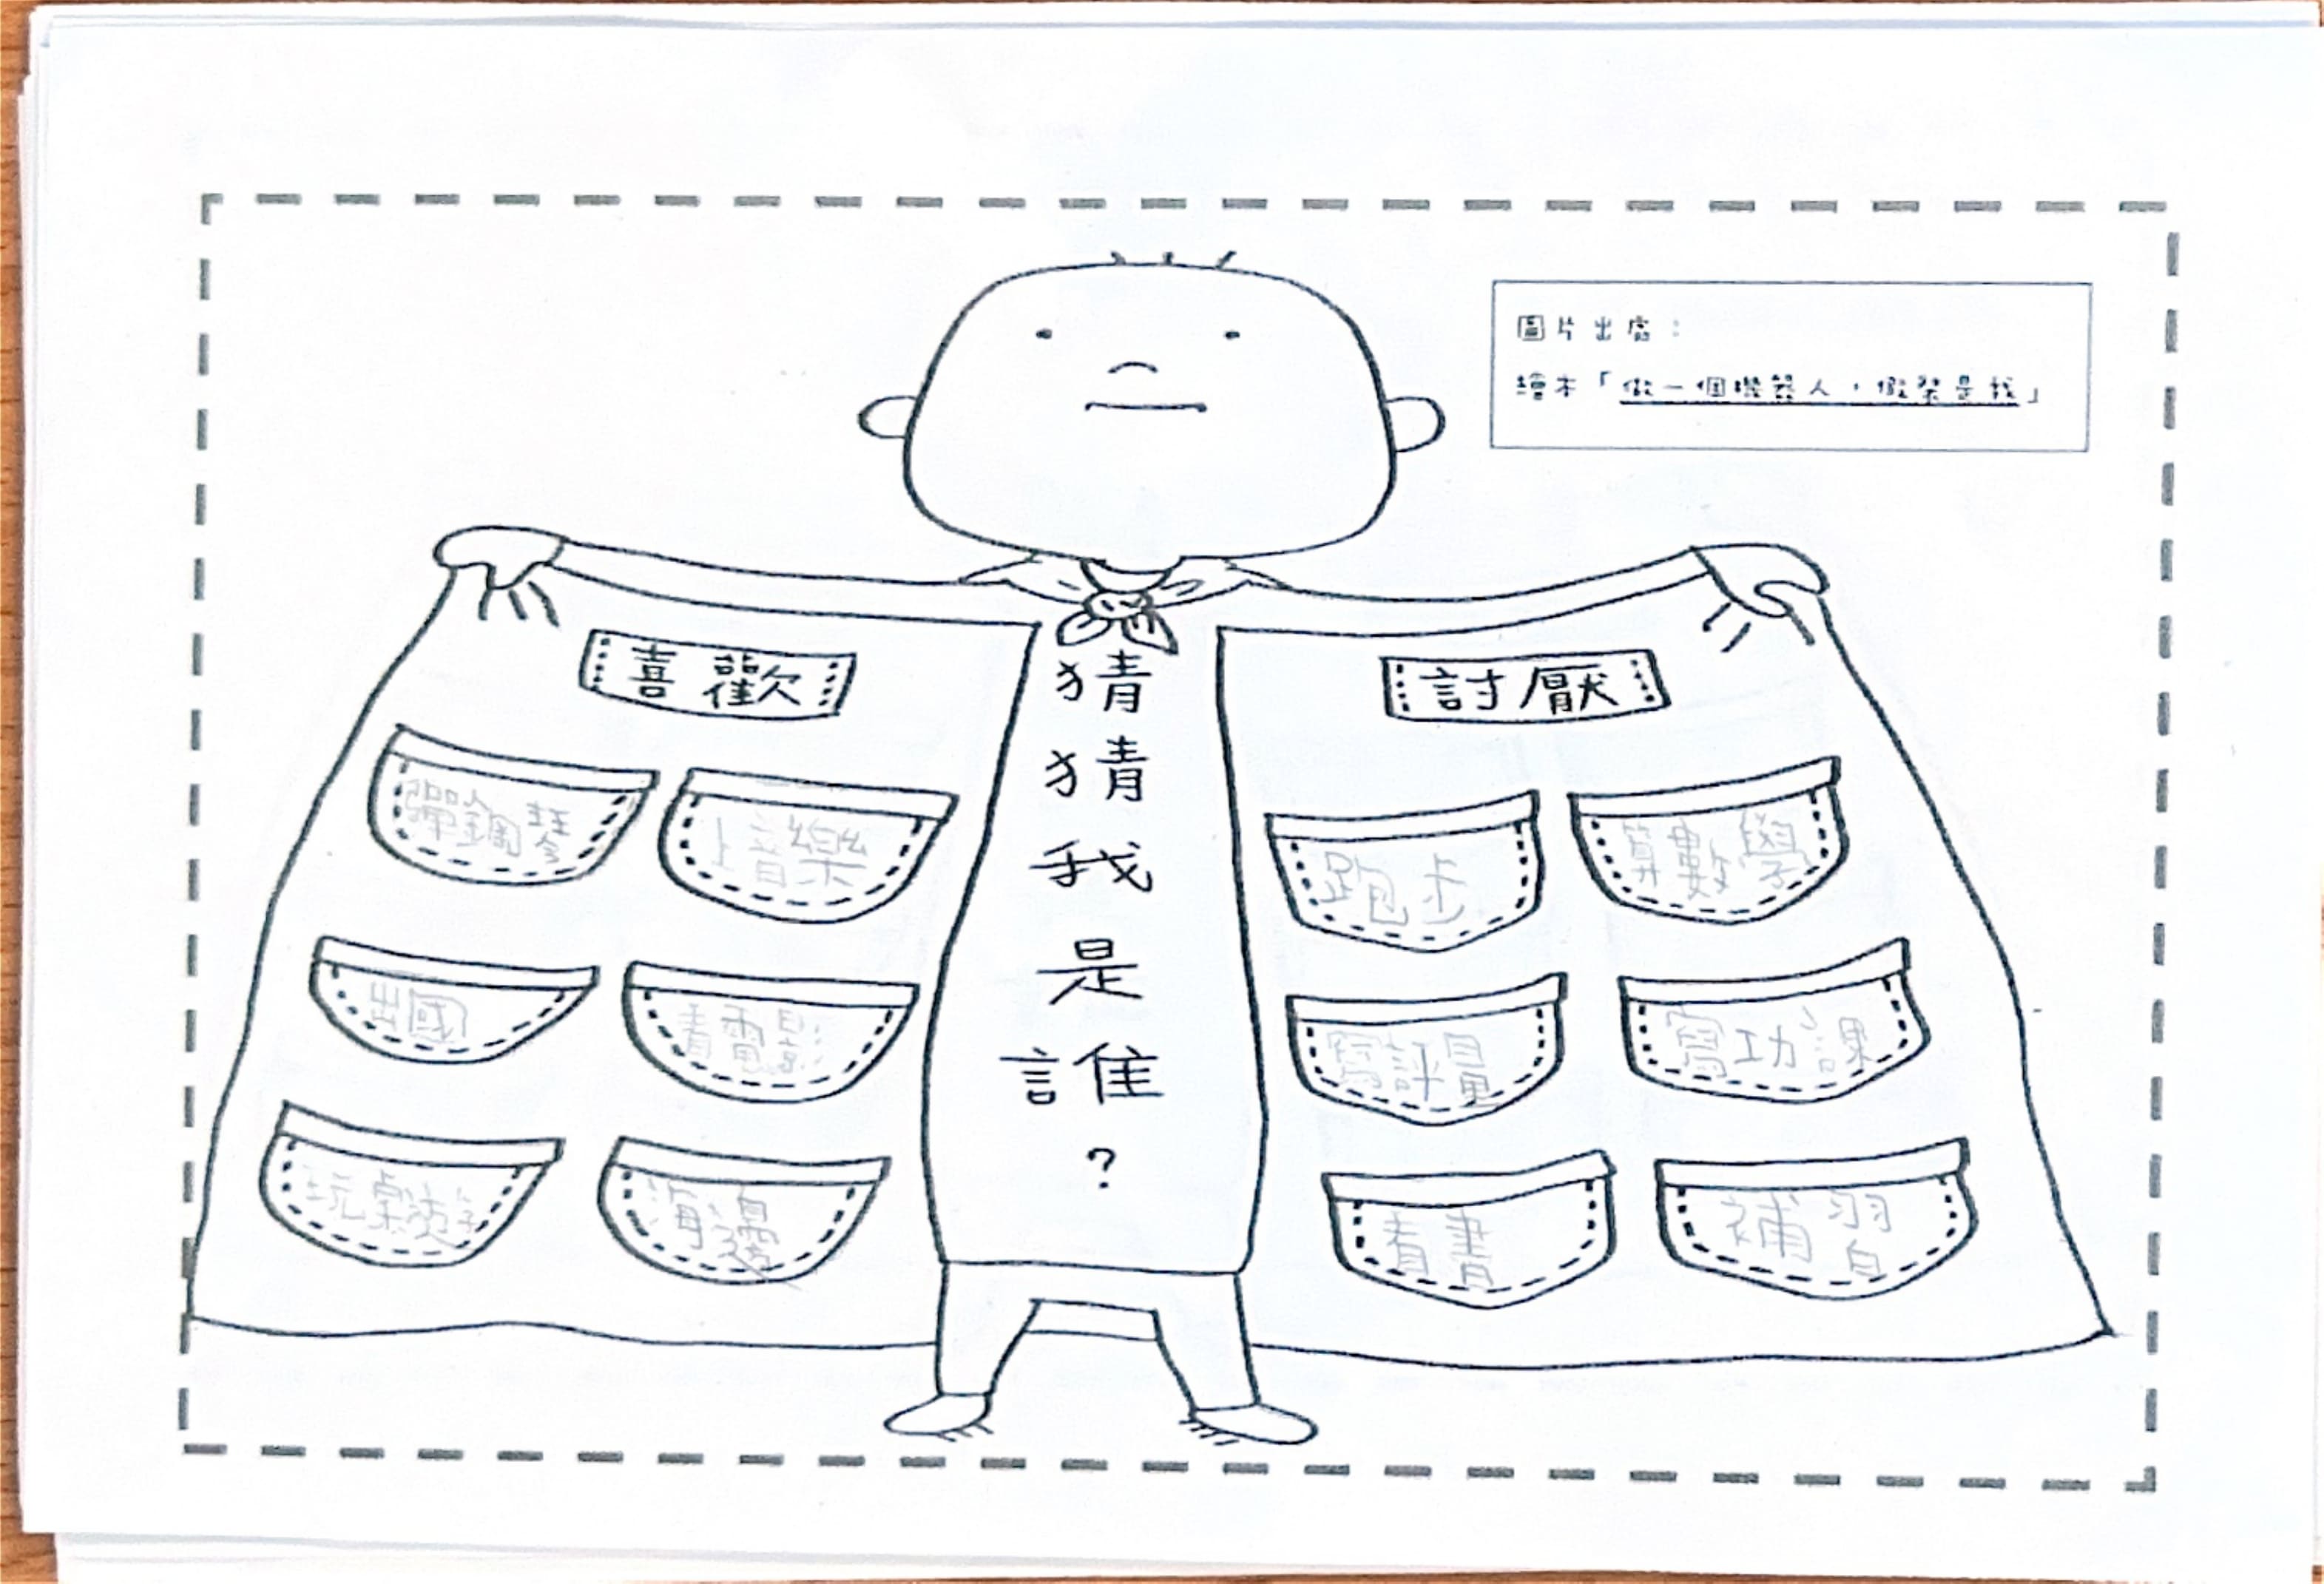 圖片出處：
繪本「做一個機器人，假裝是我」
喜歡
討厭
猜
猜
我
是
誰
？
彈鋼琴
上音樂
出國
看電影
玩桌遊
海邊
跑步
算數學
寫評量
寫功課
看書
補習